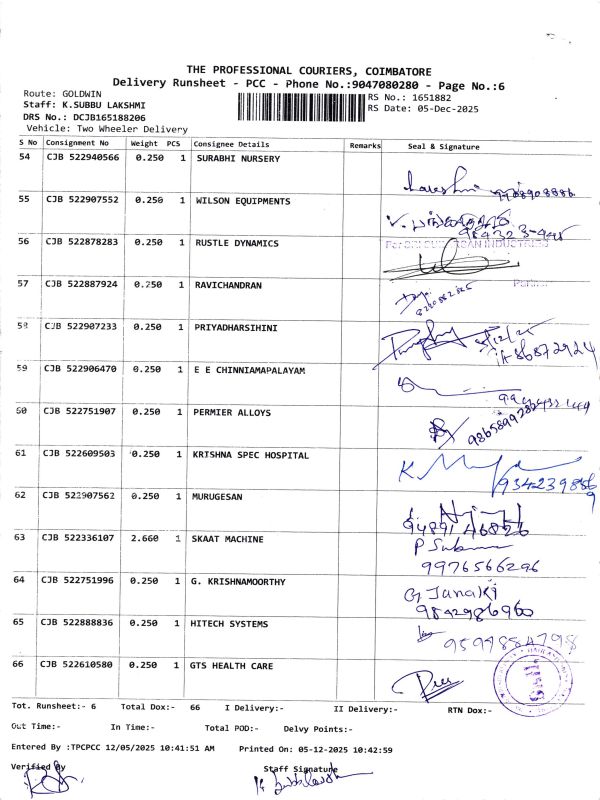 THE PROFESSIONAL COURIERS, COIMBATORE
Delivery Runsheet - PCC - Phone No.:9047080280 - Page No.:6
Route: GOLDWIN
Staff: K.SUBBU LAKSHMI
DRS No.: DCJB165188206
Vehicle: Two Wheeler Delivery
RS No.: 1651882
RS Date: 05-Dec-2025
S No Consignment No Weight PCS Consignee Details Remarks Seal & Signature
54 CJB 522940566 0.250 1 SURABHI NURSERY
55 CJB 522907552 0.250 1 WILSON EQUIPMENTS
56 CJB 522878283 0.250 1 RUSTLE DYNAMICS
57 CJB 522887924 0.250 1 RAVICHANDRAN
58 CJB 522907233 0.250 1 PRIYADHARSIHINI
59 CJB 522906470 0.250 1 E E CHINNIAMAPALAYAM
60 CJB 522751907 0.250 1 PERMIER ALLOYS
61 CJB 522609503 0.250 1 KRISHNA SPEC HOSPITAL 9342398869
62 CJB 522907562 0.250 1 MURUGESAN
63 CJB 522336107 2.660 1 SKAAT MACHINE
9976566296
64 CJB 522751996 0.250 1 G. KRISHNAMOORTHY G Janaki
9842986960
65 CJB 522888836 0.250 1 HITECH SYSTEMS
66 CJB 522610580 0.250 1 GTS HEALTH CARE
Tot. Runsheet:- 6 Total Dox:- 66 I Delivery:- II Delivery:- RTN Dox:-
Out Time:- In Time:- Total POD:- Delvy Points:-
Entered By :TPCPCC 12/05/2025 10:41:51 AM Printed On: 05-12-2025 10:42:59
Verified By Staff Signature